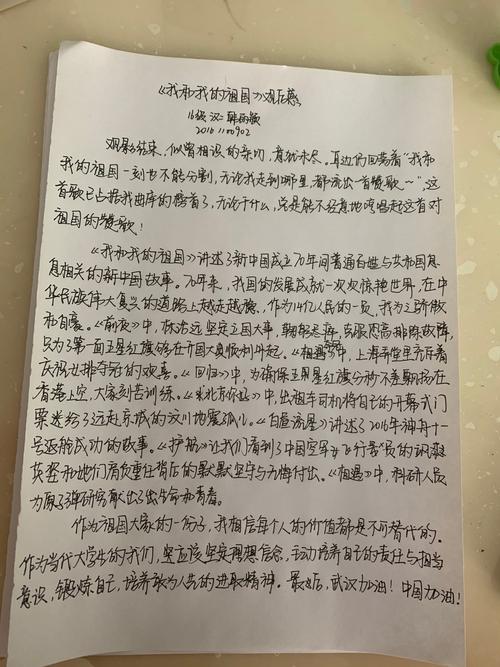 《我和我的祖国》观后感
16级 汉二
2016110902
观影结束，似曾相识的亲切，意犹未尽。耳边仍回荡着“我和
我的祖国一刻也不能分割，无论我走到哪里，都流出一首赞歌～”，这
首歌已占据我曲库的榜首了，无论干什么，总是能不经意地哼唱起这首对
祖国的赞歌！
《我和我的祖国》讲述了新中国成立70年间普通百姓与共和国息
息相关的新中国故事。70年来，我国的发展成就一次次惊艳世界，在中
华民族伟大复兴的道路上越走越稳，作为14亿人民的一员，我为之骄傲
和自豪。《前夜》中，林治远坚定立国大事，克服困难排除故障，
只为了第一面五星红旗能够在开国大典顺利升起。《相遇》中，上海弄堂里充斥着
庆祝女排夺冠的欢喜。《回归》中，为确保五星红旗分秒不差飘扬在
香港上空，大家刻苦训练。《北京你好》中，出租车司机将自己的开幕式门
票送给了远赴京城的汶川地震孤儿。《白昼流星》讲述了2016年神舟十一
号返航成功的故事。《护航》让我们看到了中国空军女飞行员的飒爽
英姿和她们肩负重任背后的默默坚守与无悔付出。《相遇》中，科研人员
为原子弹研究献出了生命和青春。
作为祖国大家的一份子，我相信每个人的价值都是不可替代的。
作为当代大学生的我们，更应该坚定理想信念，主动培养自己的责任与担当
意识，锻炼自己，培养敢为人先的进取精神。最后，武汉加油！中国加油！